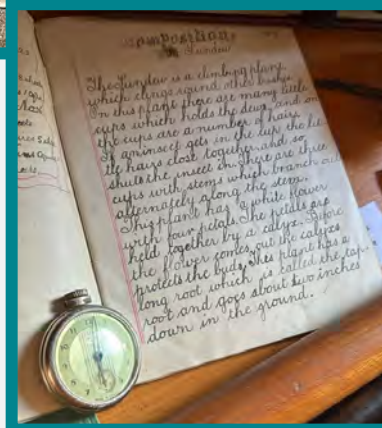 Composition
Sundew
The Sundew is a climbing plant
which clings round other bushes.
In this plant there are many little
cups which holds the dew, and on
the cups are a number of hairs.
If an insect gets in the cup the lit-
tle hairs close together and so
shuts the insect in. There are three
cups with stems which branch out
alternately along the stem.
This plant has a white flower
with four petals. The petals are
held together by a calyx. Before
the flower comes out the calyxs
protects the buds. This plant has a
long root which is called the tap-
root and goes about two inches
down in the ground.